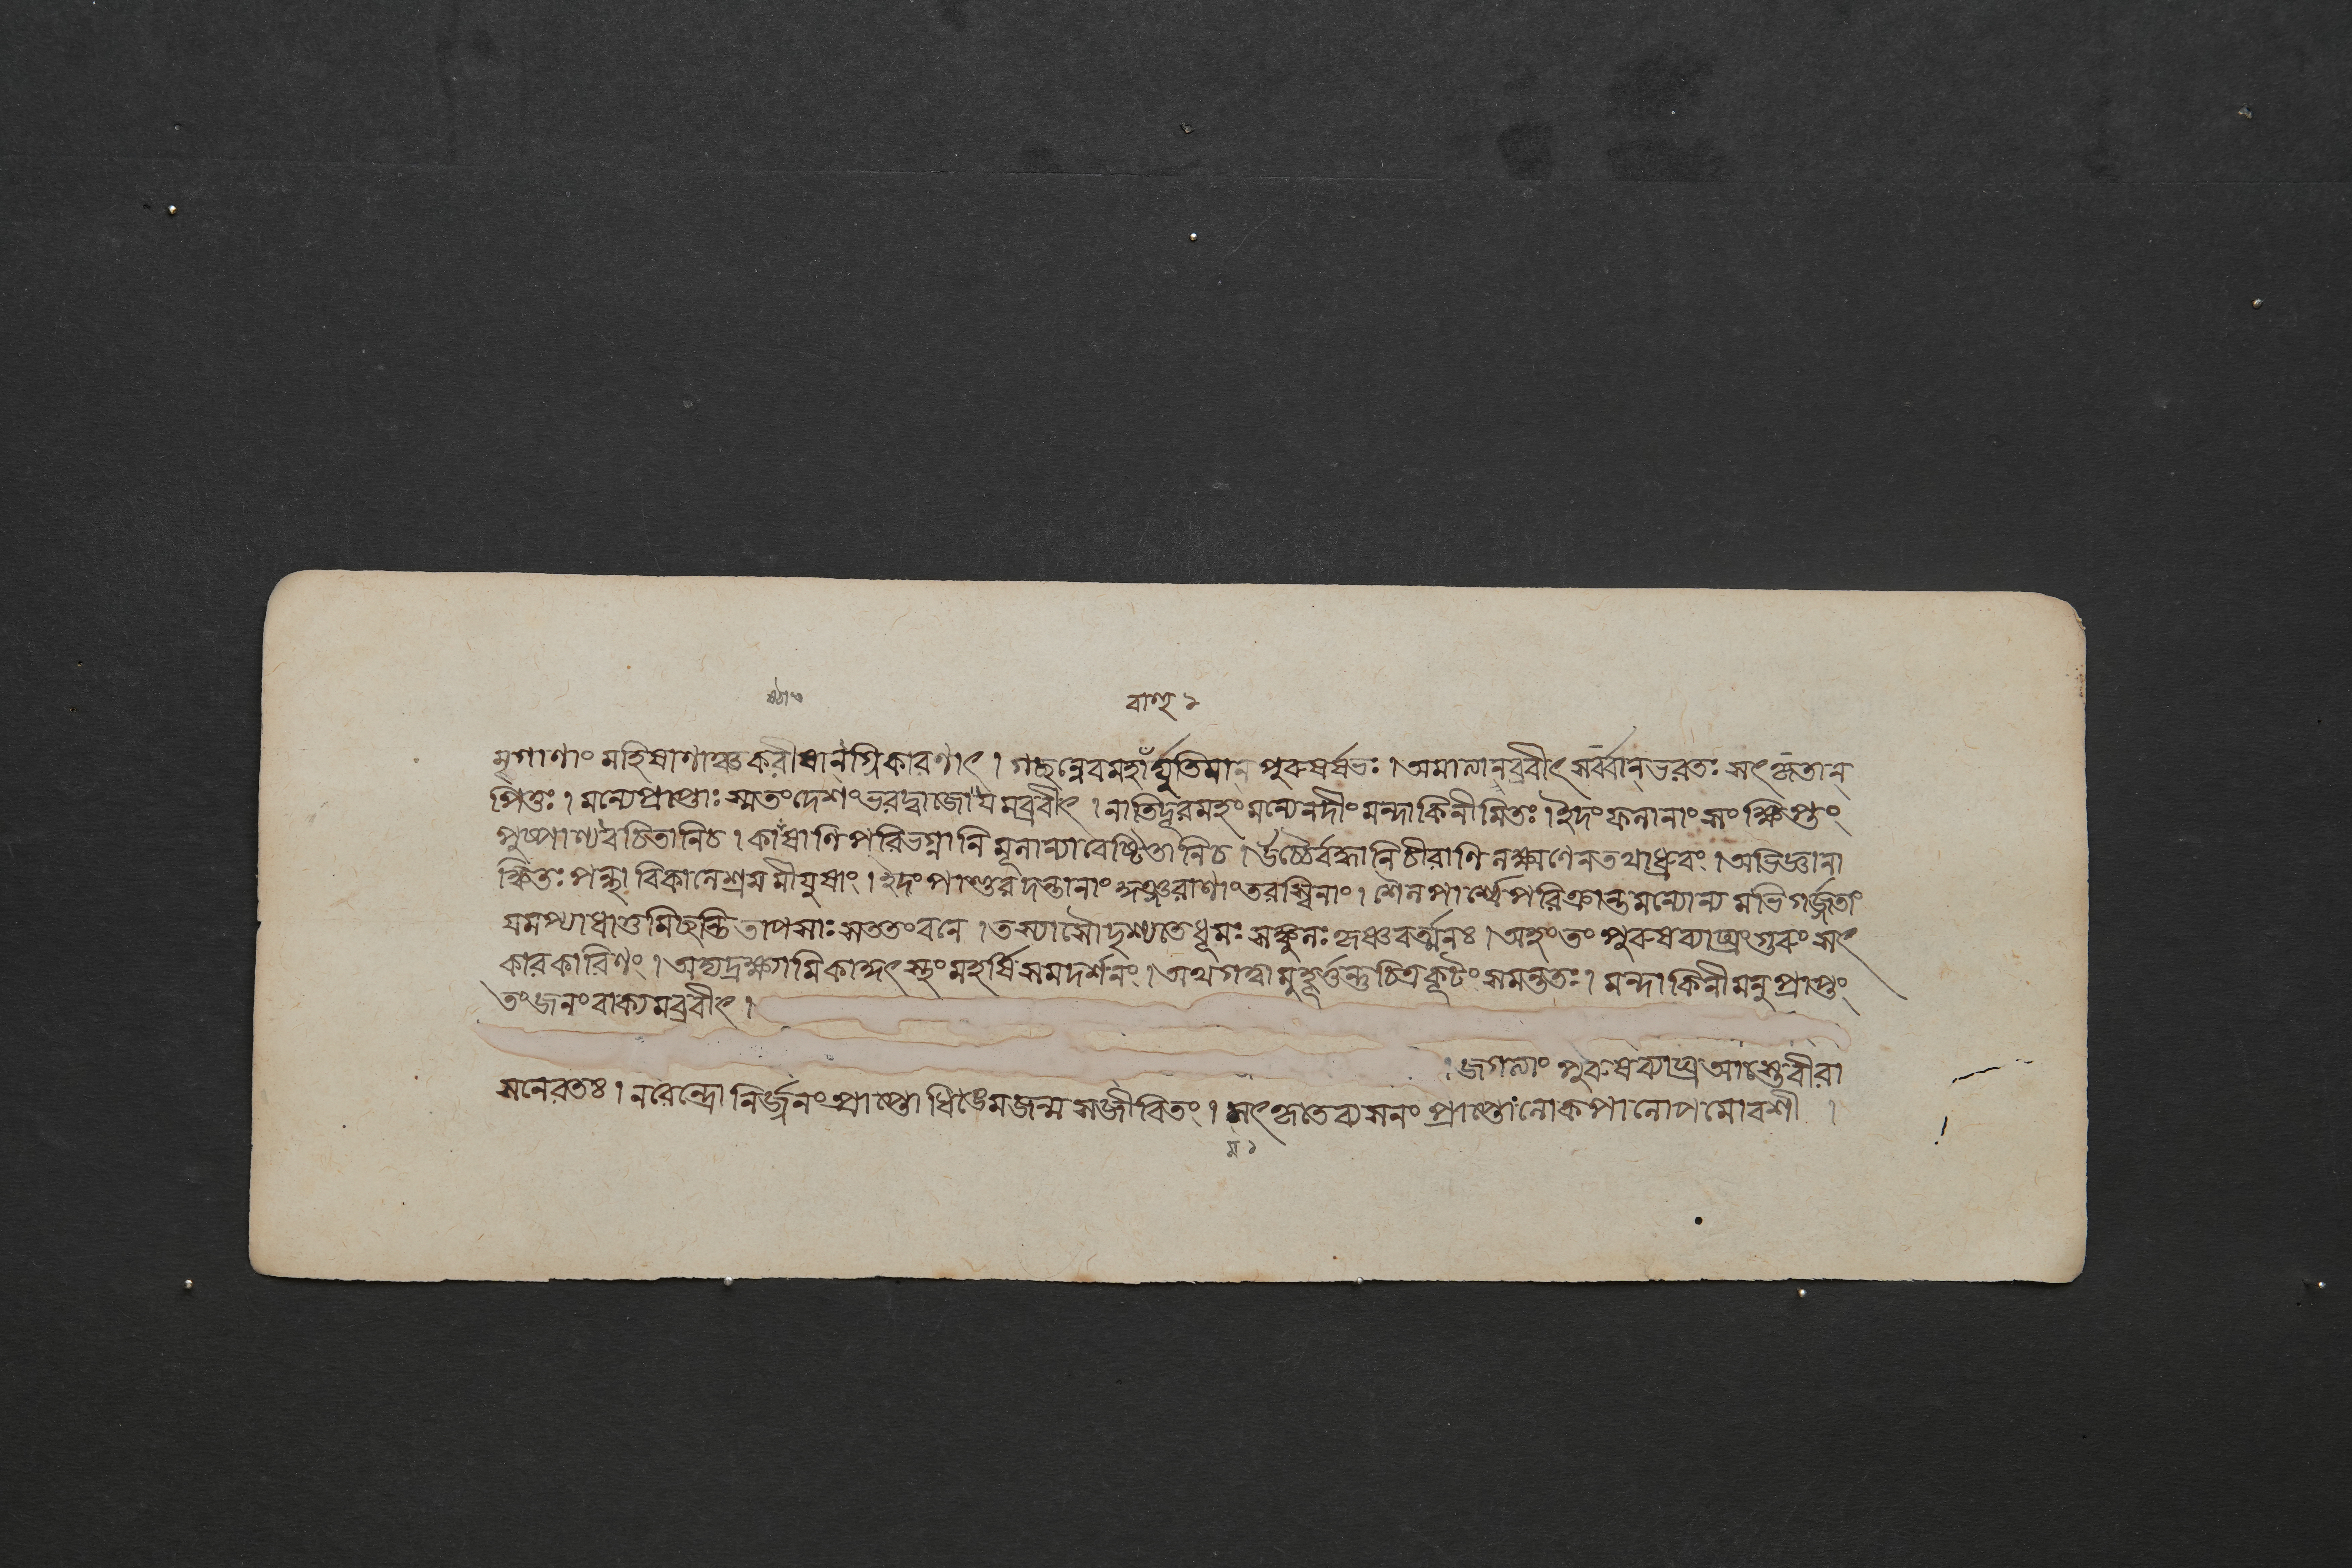 বাশ্হ ২
মৃগাণাং মহিষাণাঞ্চ করীষানগ্নিকারণাৎ । গচ্ছন্নেবমহাঁর্দ্যুতিমান্ পুরুষর্ষভঃ । অমাত্যানব্রবীৎ সর্ব্বান্ ভরতঃ সৎকৃতান্
পিতুঃ । মন্যেপ্রাপ্তাঃ স্মতংদেশংভরদ্বাজোযমব্রবীৎ । নাতিদূরমহং মন্যেনদীং মন্দাকিনীমিতঃ । ইদংফলানাং সংক্ষিপ্তং
পুষ্পাণ্যবচিতানিচ । কাষ্ঠাণিপরিভগ্নানি মূলান্যাবেষ্টিতানিচ । উচ্চৈর্বদ্ধানিচীরাণি লক্ষ্মণেনতথাধ্রুবং । অভিজ্ঞানা
ঙ্কিতঃ পন্থা বিকালেশ্রমমীযুষাং । ইদং পাণ্ডুরদন্তানাং কুঞ্জরাণাংতরস্বিনাং । শৈলপার্শ্বেপরিক্রান্তমন্যোন্য মভিগর্জ্জতাং
যমপ্যাধাতুমিচ্ছন্তি তাপসাঃ সততংবনে । তস্যাসৌদৃশ্যতেধূমঃ সঙ্কুলঃ কৃষ্ণবর্ত্মনঃ । অহংতং পুরুষব্যাঘ্রংগুরুং সৎ
কারকারিণং । অদ্যদ্রক্ষ্যামিকাকুৎস্থং মহর্ষিসমদর্শনং । অথগত্বামুহূর্ত্তন্তু চিত্রকূটং সমন্ততঃ । মন্দাকিনীমনুপ্রাপ্তং
তংজনংবাক্যমব্রবীৎ ।
। জগত্যাং পুরুষব্যাঘ্র আস্তেবীরা
সনেরতঃ । নরেন্দ্রো নির্জ্জনংপ্রাপ্তো ধিঙ্মেজন্ম সজীবিতং । সৎকৃতেব্যসনং প্রাপ্তোলোকপালোপমোবশী ।
ম ১